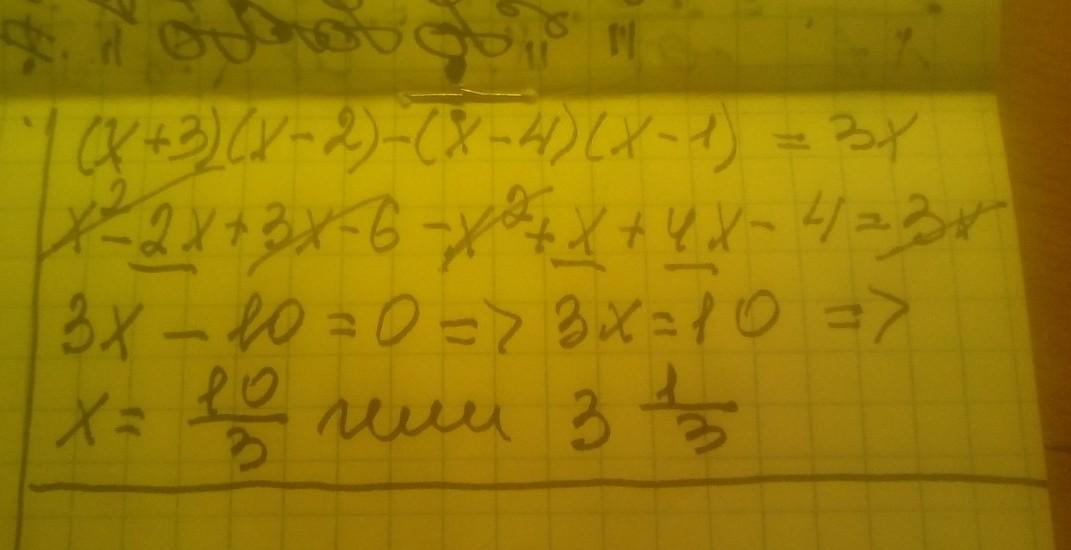 (x+3)(x-2)-(x-4)(x-1) = 3x
x²-2x+3x-6-x²+x+4x-4=3x
3x-10=0 => 3x=10 =>
x= 10/3 или 3 1/3